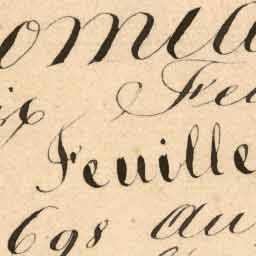 omia
ix Feu
Feuille
698 au